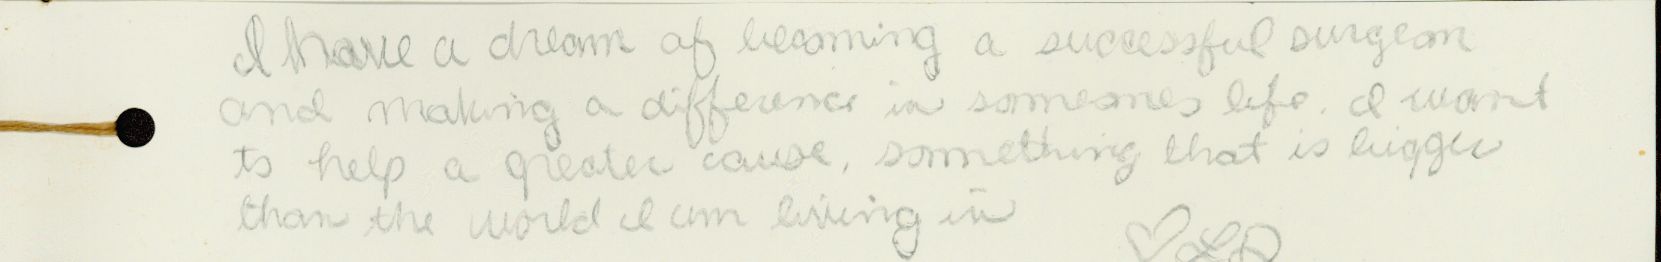 I have a dream of becoming a successful surgeon
and making a difference in someones life. I want
to help a greater cause, something that is bigger
than the world I am living in